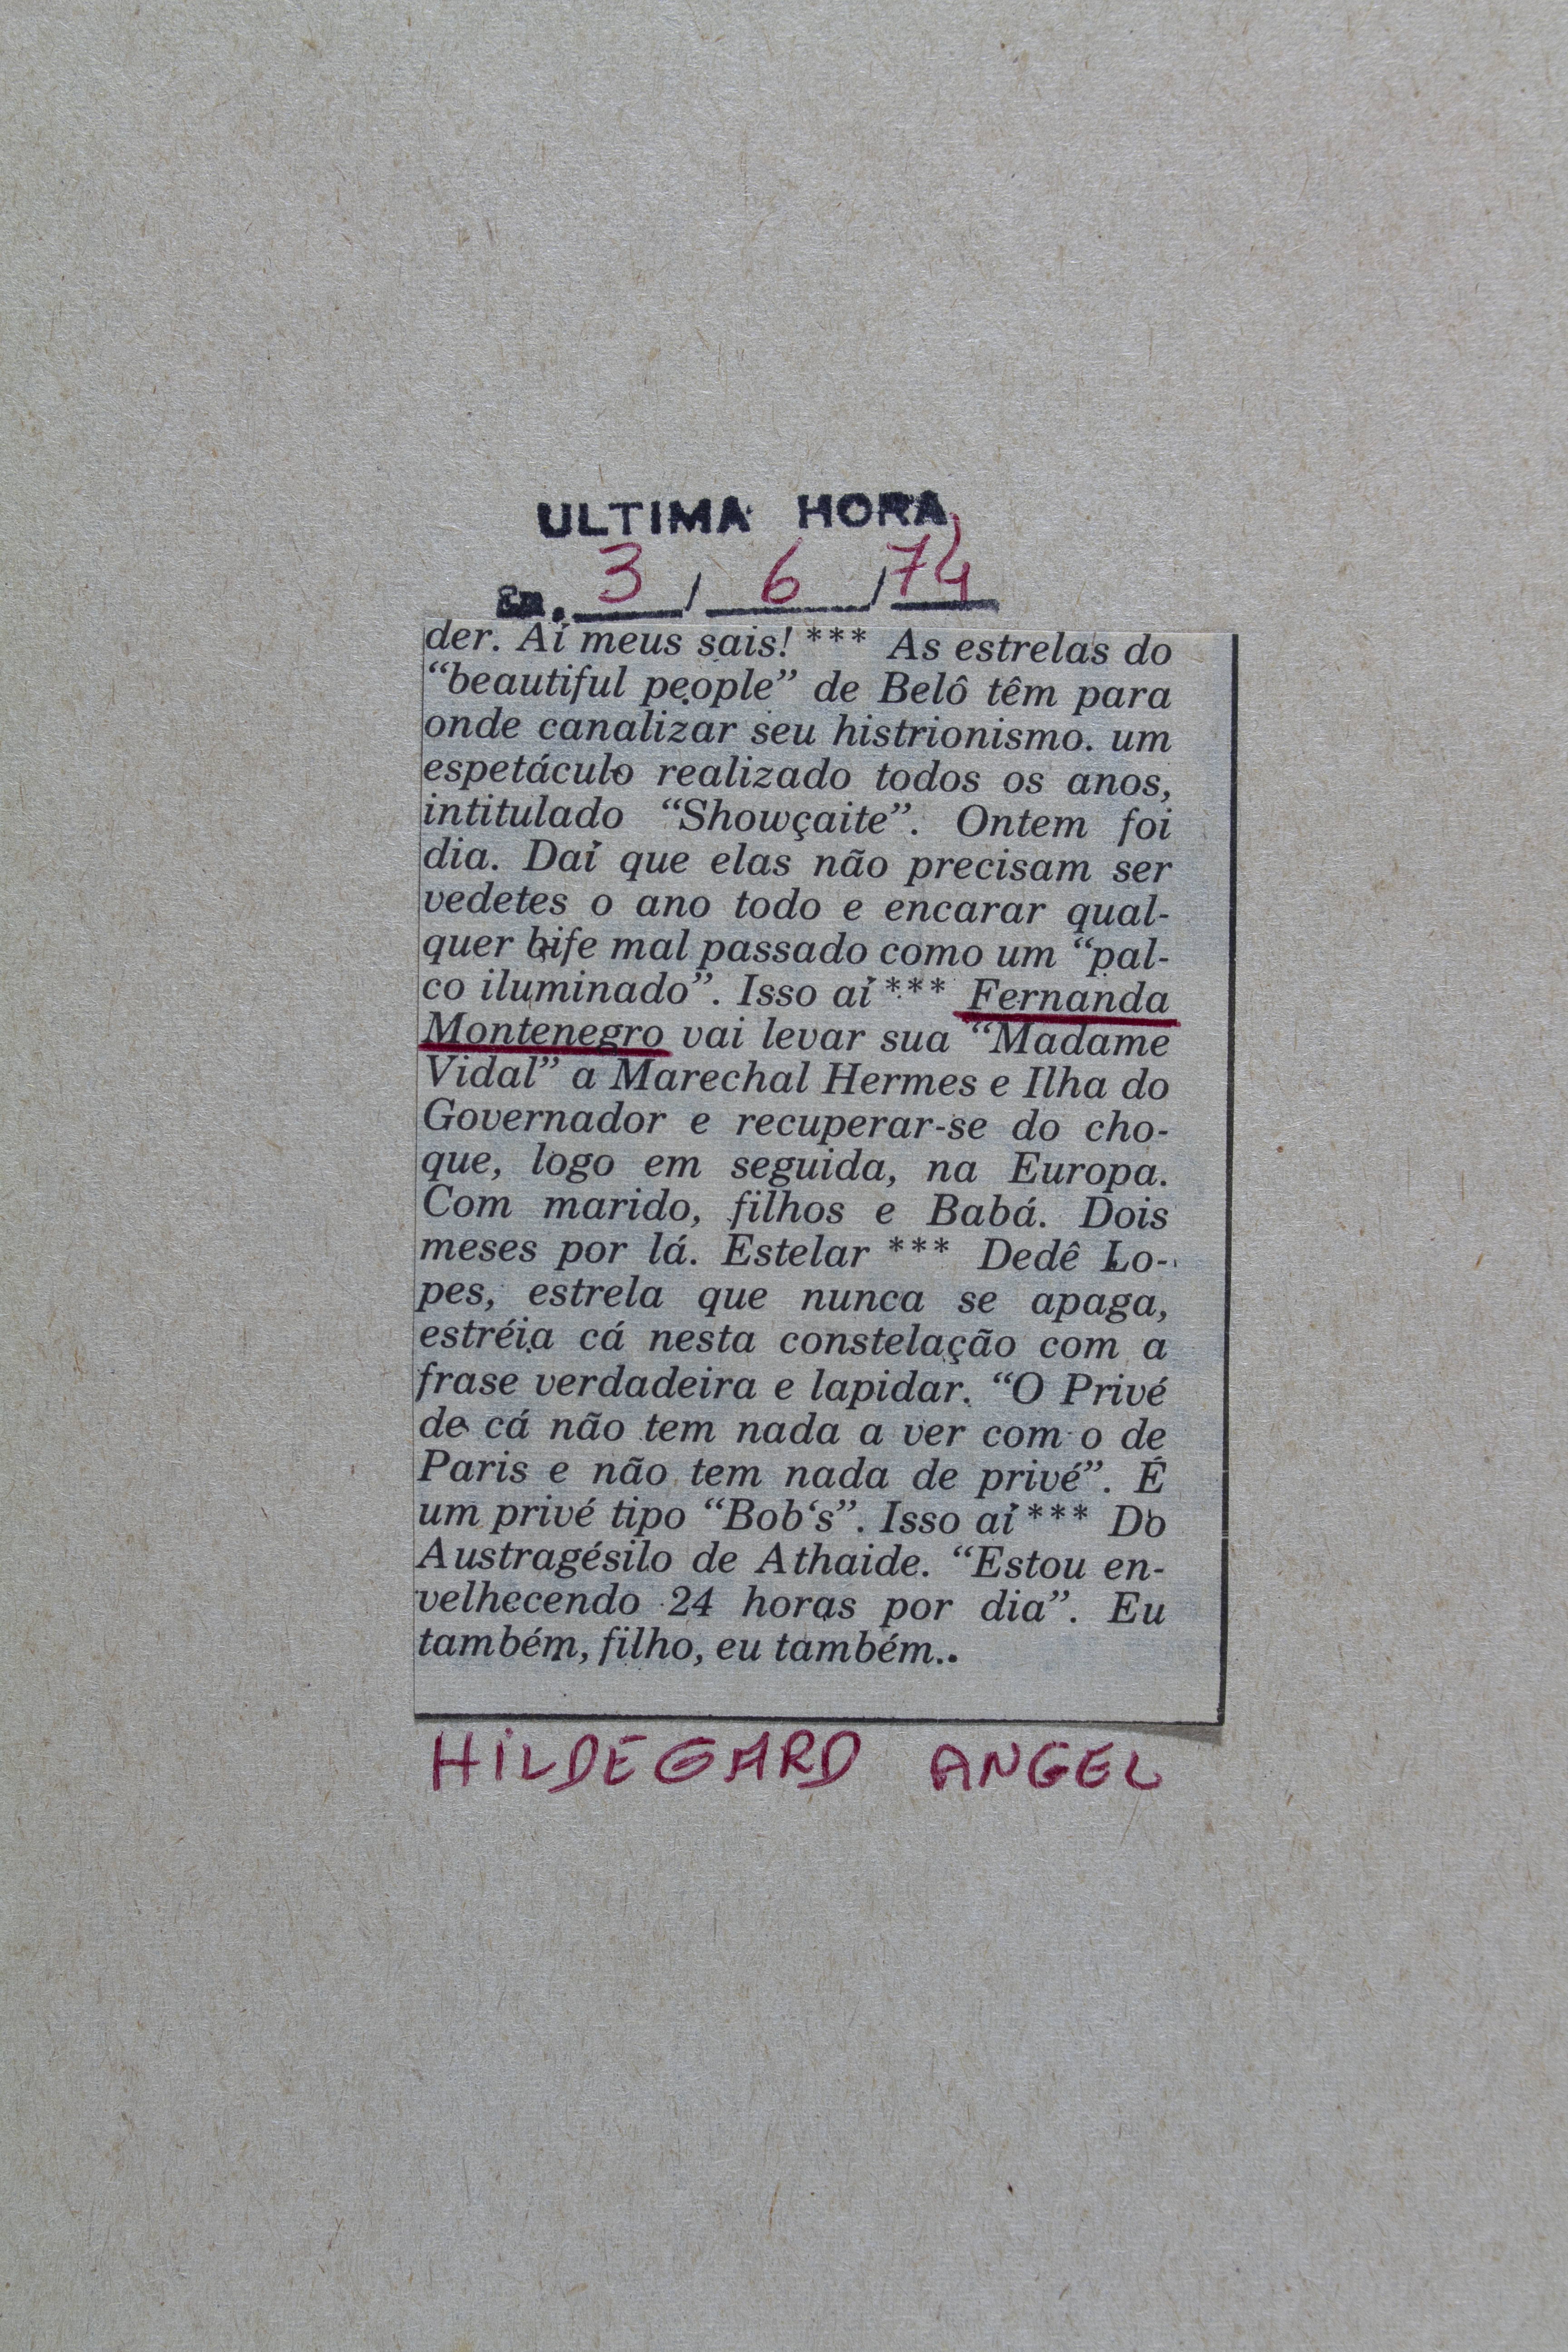 ULTIMA HORA
Em. 3 / 6 / 74
der. Aí meus sais! *** As estrelas do
“beautiful people” de Belô têm para
onde canalizar seu histrionismo. um
espetáculo realizado todos os anos,
intitulado “Showçaite”. Ontem foi
dia. Daí que elas não precisam ser
vedetes o ano todo e encarar qual-
quer bife mal passado como um “pal-
co iluminado”. Isso aí *** Fernanda
Montenegro vai levar sua “Madame
Vidal” a Marechal Hermes e Ilha do
Governador e recuperar-se do cho-
que, logo em seguida, na Europa.
Com marido, filhos e Babá. Dois
meses por lá. Estelar *** Dedê Lo-
pes, estrela que nunca se apaga,
estréia cá nesta constelação com a
frase verdadeira e lapidar. “O Privé
de cá não tem nada a ver com o de
Paris e não tem nada de privé”. É
um privé tipo “Bob‘s”. Isso aí *** Do
Austragésilo de Athaide. “Estou en-
velhecendo 24 horas por dia”. Eu
também, filho, eu também..
HILDEGARD ANGEL